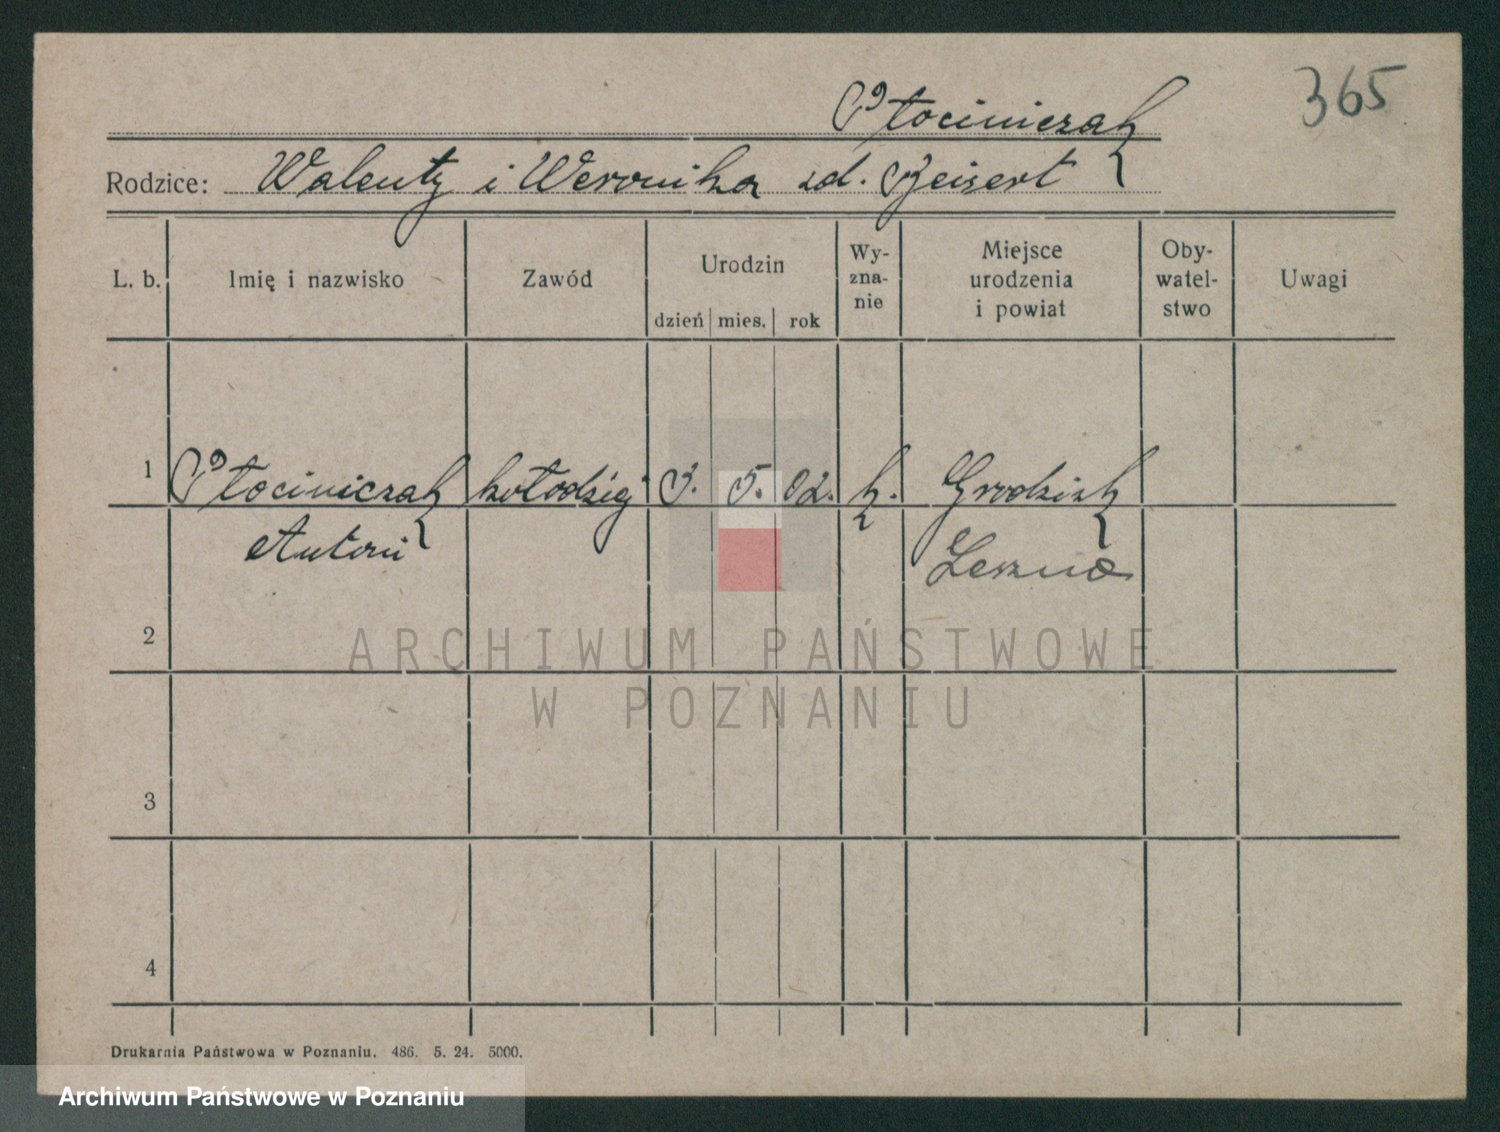 365
Płociniczak
Rodzice: Walenty i Weronika zd. Beisert
L. b. Imię i nazwisko Zawód Urodzin dzień mies. rok Wy-zna-nie Miejsce urodzenia i powiat Oby-watel-stwo Uwagi
1 Płociniczak kołodziej 3. 5. 02. k. Grodzisk
Antoni Leszno
2
3
4
ARCHIWUM PAŃSTWOWE
W POZNANIU
Drukarnia Państwowa w Poznaniu. 486. 5. 24. 5000.
Archiwum Państwowe w Poznaniu